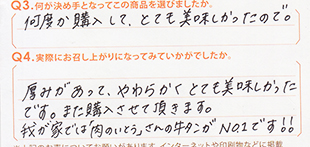 Q3.何が決め手となってこの商品を選びましたか。
何度か購入して、とても美味しかったので。
Q4.実際にお召し上がりになってみていかがでしたか。
厚みがあって、やわらかくとても美味しかった
です。また購入させて頂きます。
我が家では「肉のいとう」さんの牛タンが NO1です!!